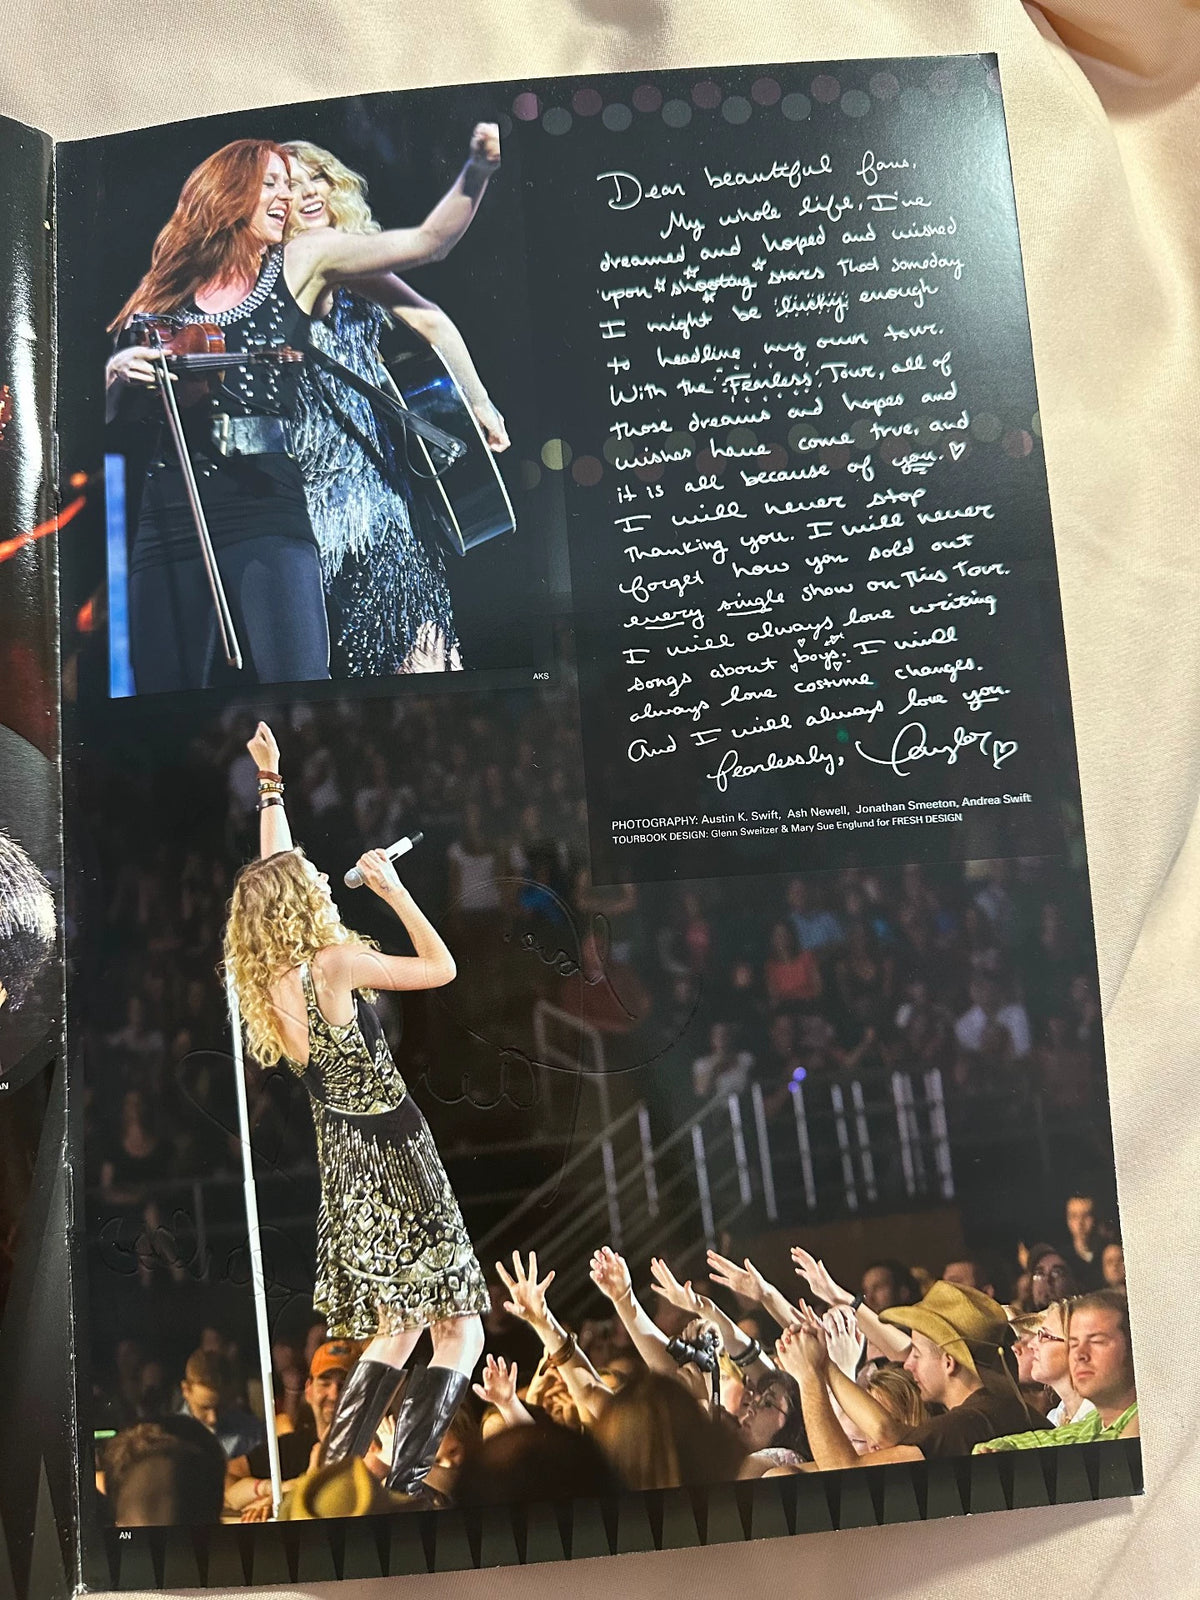 Dear beautiful fans,
My whole life, I've
dreamed and hoped and wished
upon shooting stars that someday
I might be lucky enough
to headline my own tour.
With the Fearless Tour, all of
those dreams and hopes and
wishes have come true, and
it is all because of you. ♡
I will never stop
thanking you. I will never
forget how you sold out
every single show on this tour.
I will always love writing
songs about boys. I will
always love costume changes.
And I will always love you.
fearlessly, Taylor ♡
PHOTOGRAPHY: Austin K. Swift, Ash Newell, Jonathan Smeeton, Andrea Swift
TOURBOOK DESIGN: Glenn Sweitzer & Mary Sue Englund for FRESH DESIGN
AKS
AN
AN